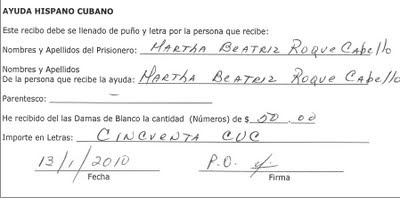 AYUDA HISPANO CUBANO
Este recibo debe se llenado de puño y letra por la persona que recibe:
Nombres y Apellidos del Prisionero: MARTHA BEATRIZ ROQUE CABELLO
Nombres y Apellidos
De la persona que recibe la ayuda: MARTHA BEATRIZ ROQUE CABELLO
Parentesco: –
He recibido del las Damas de Blanco la cantidad (Números) de $ 50.00
Importe en Letras: CINCUENTA CUC
13/1/2010 P.O.
Fecha Firma